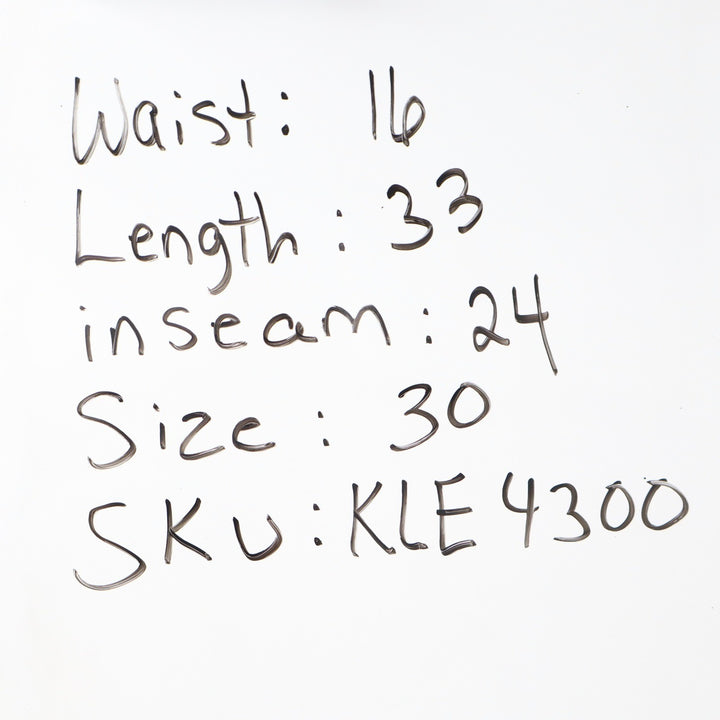 Waist: 16
Length: 33
inseam: 24
Size: 30
SKU: KLE4300